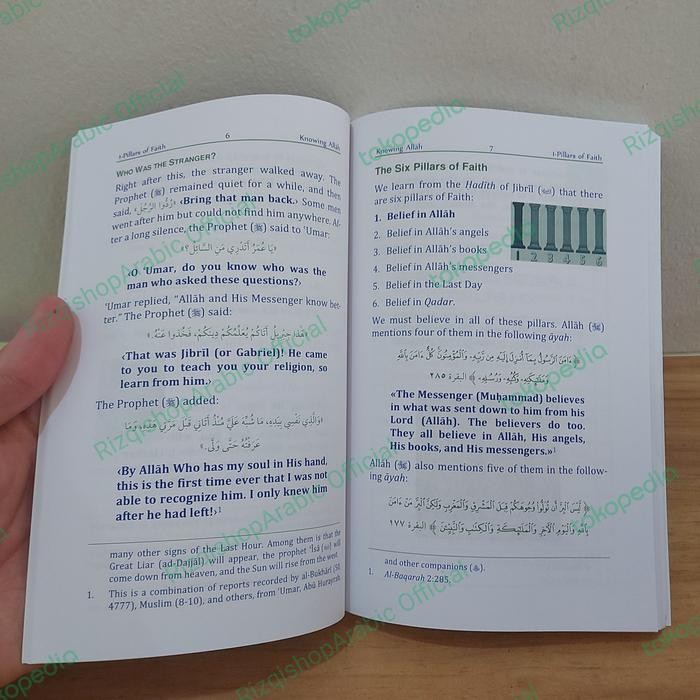 1-Pillars of Faith 6 Knowing Allāh
WHO WAS THE STRANGER?
Right after this, the stranger walked away. The
Prophet (ﷺ) remained quiet for a while, and then
said, ‹رُدُّوا الرَّجُلَ› ‹Bring that man back.› Some men
went after him but could not find him anywhere. Af-
ter a long silence, the Prophet (ﷺ) said to ‘Umar:
«يَا عُمَرُ أَتَدْرِي مَنِ السَّائِلُ؟»
‹O ‘Umar, do you know who was the
man who asked these questions?›
‘Umar replied, “Allāh and His Messenger know bet-
ter.” The Prophet (ﷺ) said:
«هَذَا جِبْرِيلُ أَتَاكُمْ يُعَلِّمُكُمْ دِينَكُمْ، فَخُذُوا عَنْهُ.»
‹That was Jibrīl (or Gabriel)! He came
to you to teach you your religion, so
learn from him.›
The Prophet (ﷺ) added:
«وَالَّذِي نَفْسِي بِيَدِهِ، مَا شُبِّهَ عَلَيَّ مُنْذُ أَتَانِي قَبْلَ مَرَّتِي هَذِهِ، وَمَا
عَرَفْتُهُ حَتَّى وَلَّى.»
‹By Allāh Who has my soul in His hand,
this is the first time ever that I was not
able to recognize him. I only knew him
after he had left!›1
many other signs of the Last Hour. Among them is that the
Great Liar (ad-Dajjāl) will appear, the prophet ‘Īsā will
come down from heaven, and the Sun will rise from the west.
1. This is a combination of reports recorded by al-Bukhārī (50,
4777), Muslim (8-10), and others, from ‘Umar, Abū Hurayrah,
Knowing Allāh 7 1-Pillars of Faith
The Six Pillars of Faith
We learn from the Hadīth of Jibrīl that there
are six pillars of Faith:
1. Belief in Allāh
2. Belief in Allāh’s angels
3. Belief in Allāh’s books
4. Belief in Allāh’s messengers
5. Belief in the Last Day
6. Belief in Qadar.
1 2 3 4 5 6
We must believe in all of these pillars. Allāh (ﷻ)
mentions four of them in the following āyah:
﴿ءَامَنَ الرَّسُولُ بِمَآ أُنزِلَ إِلَيْهِ مِن رَّبِّهِۦ وَالْمُؤْمِنُونَ كُلٌّ ءَامَنَ بِاللَّهِ
وَمَلَٰٓئِكَتِهِۦ وَكُتُبِهِۦ وَرُسُلِهِۦ﴾ البقرة ٢٨٥
«The Messenger (Muḥammad) believes
in what was sent down to him from his
Lord (Allāh). The believers do too.
They all believe in Allāh, His angels,
His books, and His messengers.»1
Allāh (ﷻ) also mentions five of them in the follow-
ing āyah:
﴿لَّيْسَ الْبِرَّ أَن تُوَلُّوا وُجُوهَكُمْ قِبَلَ الْمَشْرِقِ وَالْمَغْرِبِ وَلَٰكِنَّ الْبِرَّ مَنْ ءَامَنَ
بِاللَّهِ وَالْيَوْمِ الْآخِرِ وَالْمَلَٰٓئِكَةِ وَالْكِتَٰبِ وَالنَّبِيِّۦنَ﴾ البقرة ١٧٧
and other companions (﷢).
1. Al-Baqarah 2:285.
RizqishopArabic Official
tokopedia